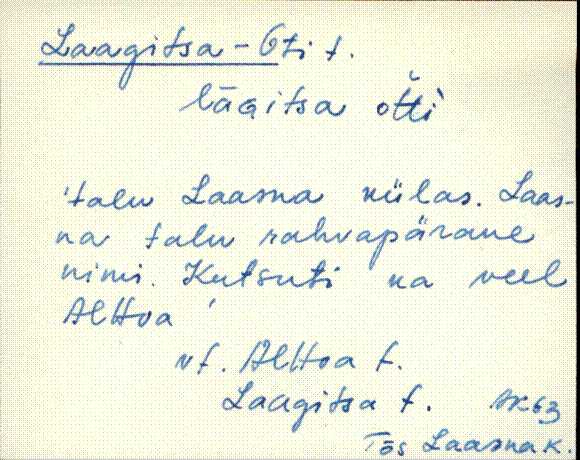 Laagitsa-Oti t.
lāgitsa ot̆ti
'talu Laasna külas. Laas-
na talu rahvapärane
nimi. Kutsuti ka veel
Alttoa'
vt. Alttoa t.
Laagitsa t. AK63
Tõs Laasna k.